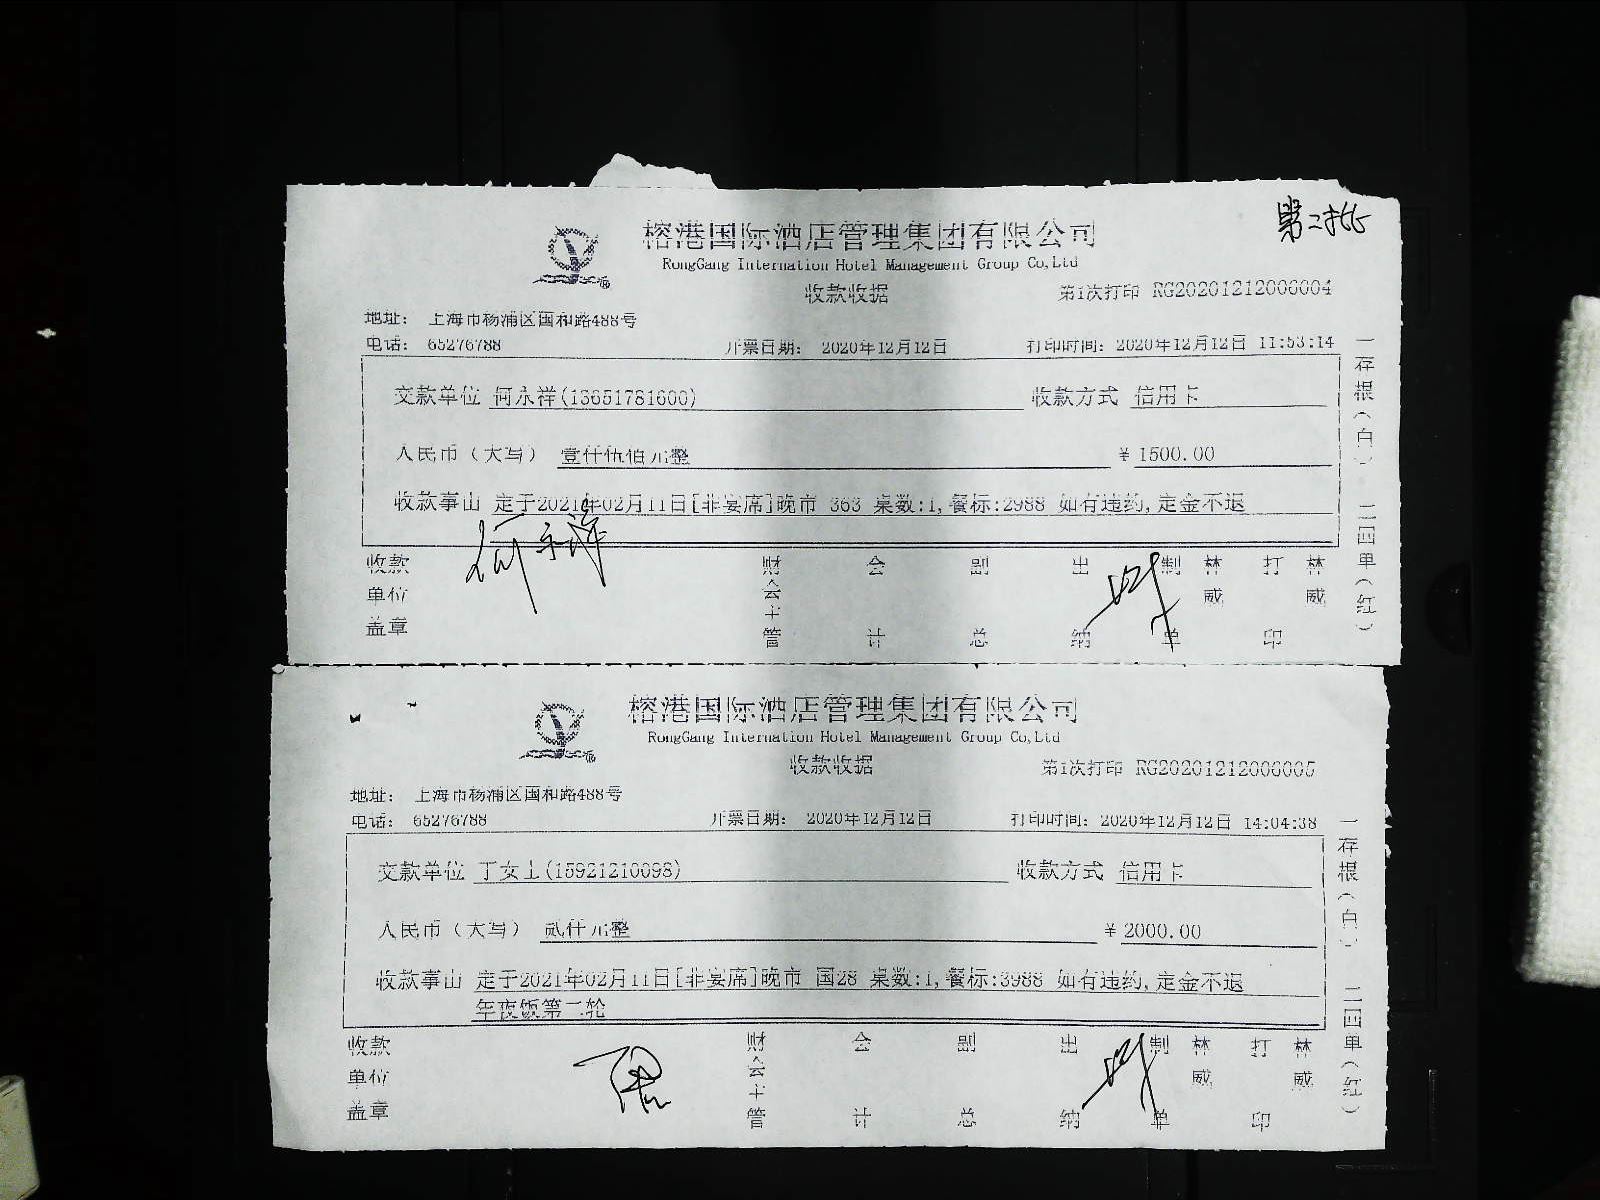 第二批
榕港国际酒店管理集团有限公司
RongGang Internation Hotel Management Group Co,Ltd
收款收据
第1次打印 RG20201212006004
地址： 上海市杨浦区国和路488号
电话： 65276788 开票日期： 2020年12月12日 打印时间：2020年12月12日 11:53:14
交款单位 何永祥(13651781600) 收款方式 信用卡
人民币（大写） 壹仟伍佰元整 ￥1500.00
收款事由 定于2021年02月11日[非宴席]晚市 363 桌数:1,餐标:2988 如有违约,定金不退
何永祥
收款单位盖章 财会主管 会计 副总 出纳 制单 林威 打印 林威
一存根（白） 二回单（红）
榕港国际酒店管理集团有限公司
RongGang Internation Hotel Management Group Co,Ltd
收款收据
第1次打印 RG20201212006005
地址： 上海市杨浦区国和路488号
电话： 65276788 开票日期： 2020年12月12日 打印时间：2020年12月12日 14:04:38
交款单位 丁女士(15921210098) 收款方式 信用卡
人民币（大写） 贰仟元整 ￥2000.00
收款事由 定于2021年02月11日[非宴席]晚市 国28 桌数:1,餐标:3988 如有违约,定金不退
年夜饭第二轮
收款单位盖章 财会主管 会计 副总 出纳 制单 林威 打印 林威
一存根（白） 二回单（红）